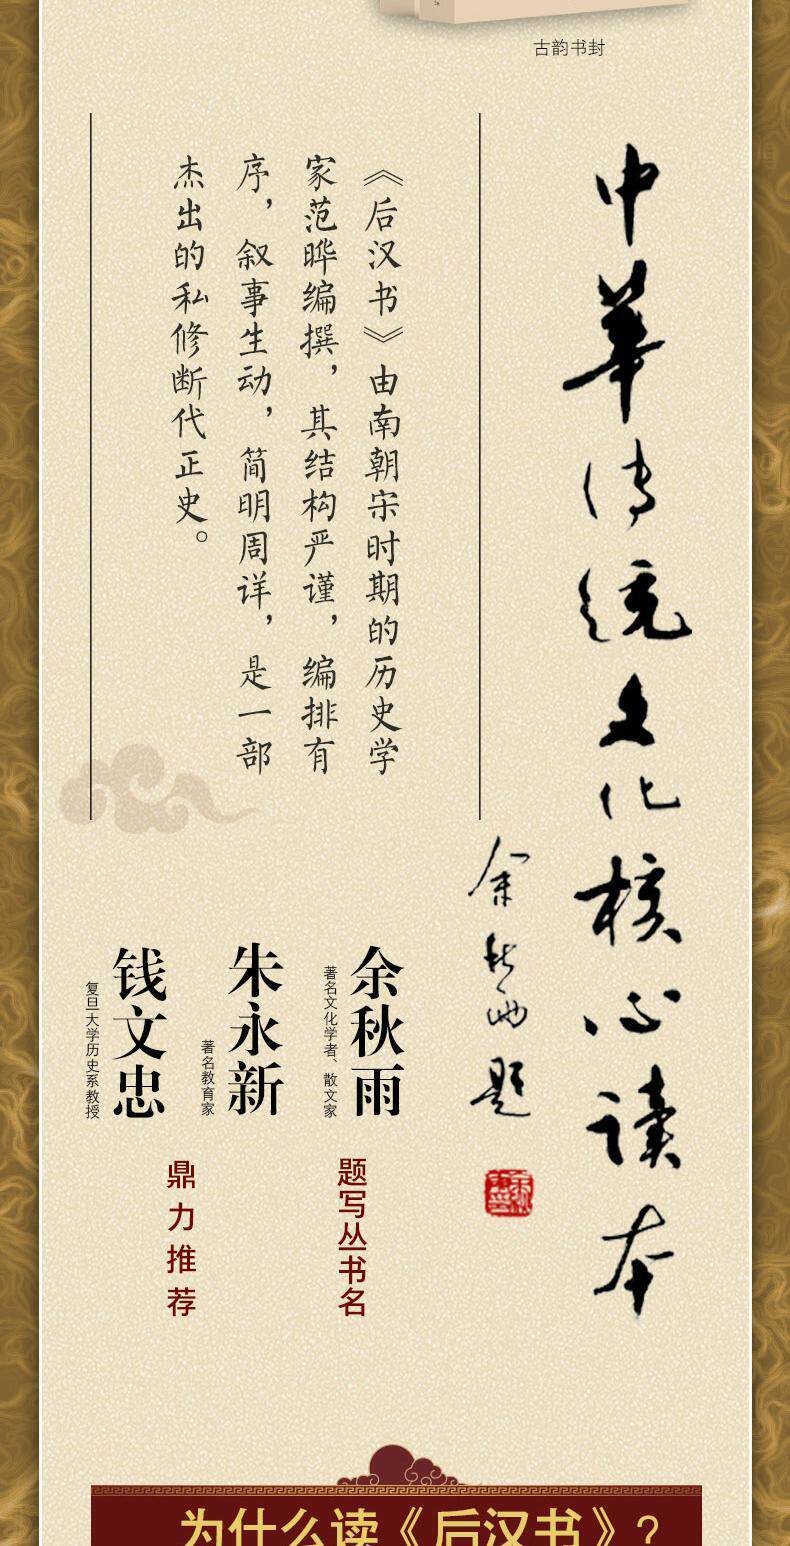 古韵书封
中华传统文化核心读本
余秋雨题
《后汉书》由南朝宋时期的历史学
家范晔编撰，其结构严谨，编排有
序，叙事生动，简明周详，是一部
杰出的私修断代正史。
余秋雨
著名文化学者、散文家
题写丛书名
朱永新
著名教育家
钱文忠
复旦大学历史系教授
鼎力推荐
为什么读《后汉书》？